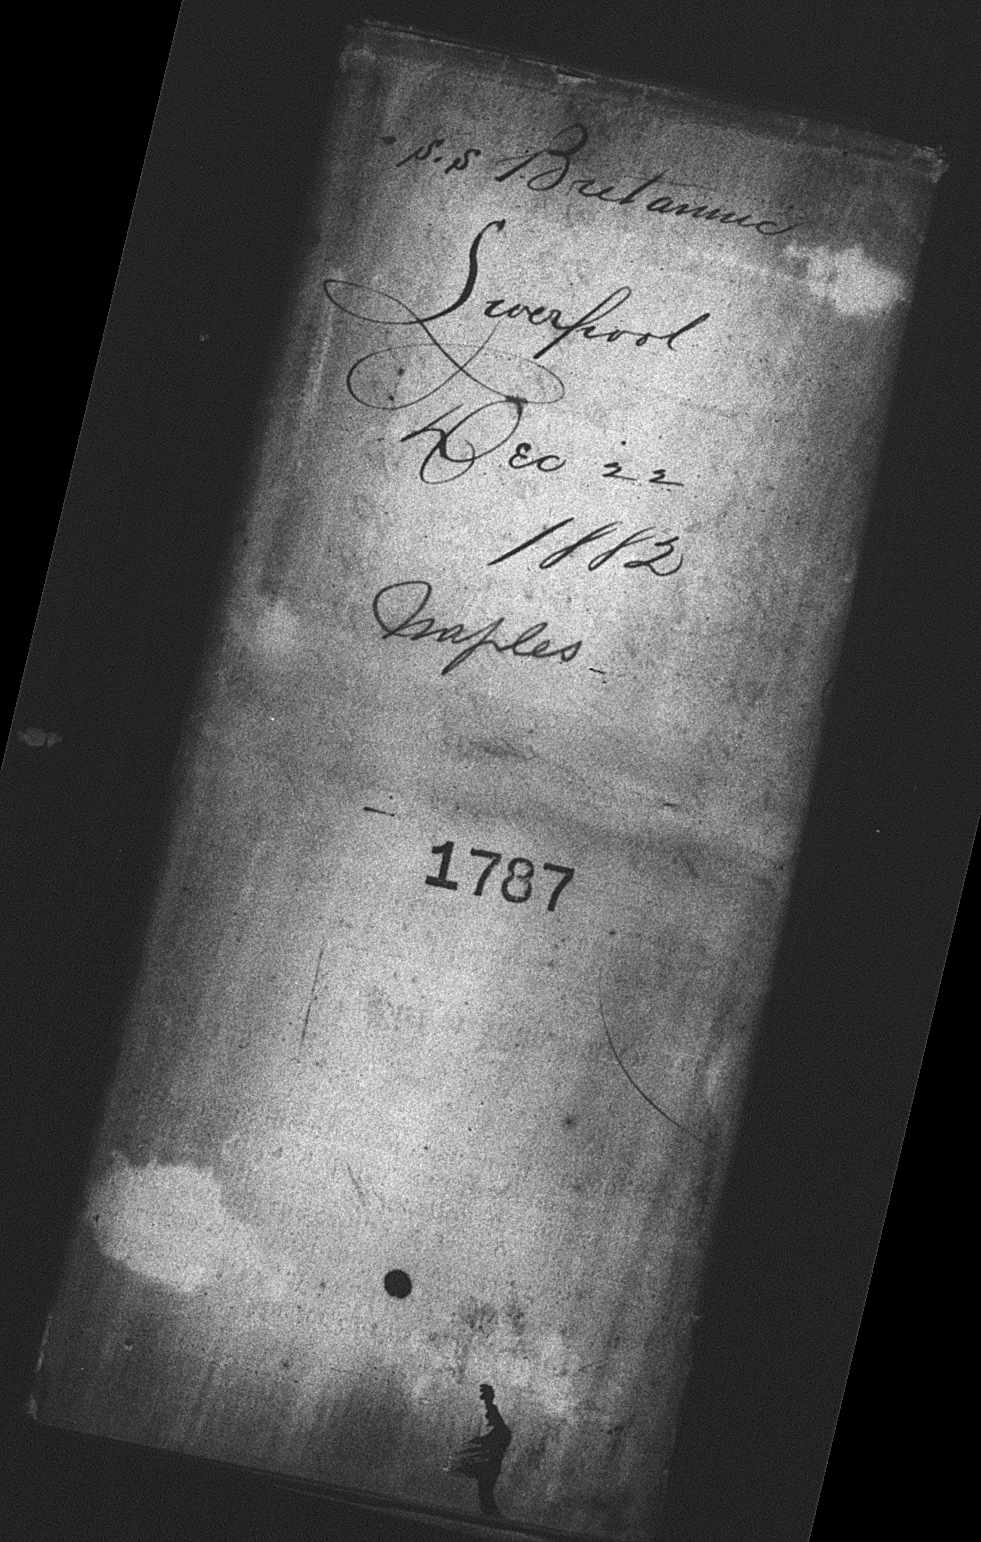 S.S Britannic
Liverpool
Dec 22
1882
Naples
1787